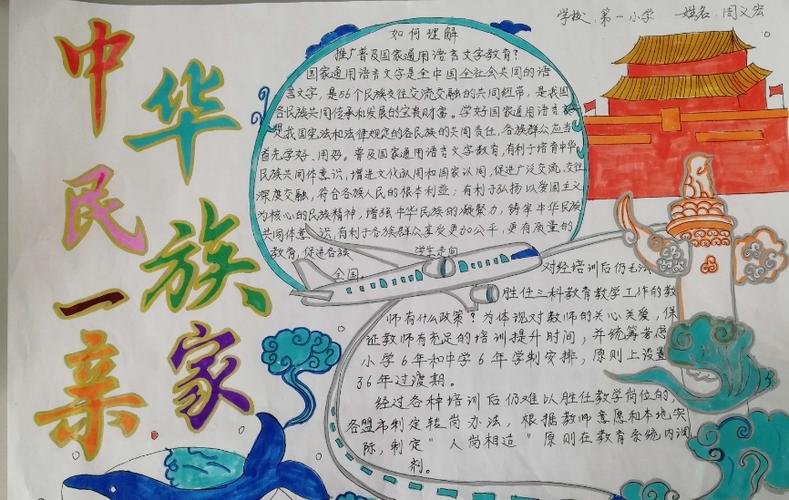 学校：第一小学 姓名：周义宏
中华民族一家亲
如何理解
推广普及国家通用语言文字教育？
国家通用语言文字是全中国全社会共同的语
言文字，是56个民族交往交流交融的共同纽带，是我国
各民族共同传承和发展的宝贵财富。学好国家通用语言
是我国宪法和法律规定的各民族的共同责任，各族群众应当
首先学好、用好。普及国家通用语言文字教育，有利于培育中华
民族共同体意识，增进文化认同和国家认同，促进广泛交流、交往
深度交融，符合各族人民的根本利益；有利于弘扬以爱国主义
为核心的民族精神，增强中华民族的凝聚力，铸牢中华民族
共同体意识，有利于各族群众享受更加公平，更有质量的
教育，促进各族 学生走向
全国。
对经培训后仍无法
胜任三科教育教学工作的教
师有什么政策？为体现对教师的关心关爱，保
证教师有充足的培训提升时间，并统筹考虑
小学6年和中学6年学制安排，原则上设置
36年过渡期。
经过各种培训后仍难以胜任教学岗位的，
各盟市制定转岗办法，根据教师意愿和本地实
际，制定"人岗相适"原则在教育系统内调
剂。